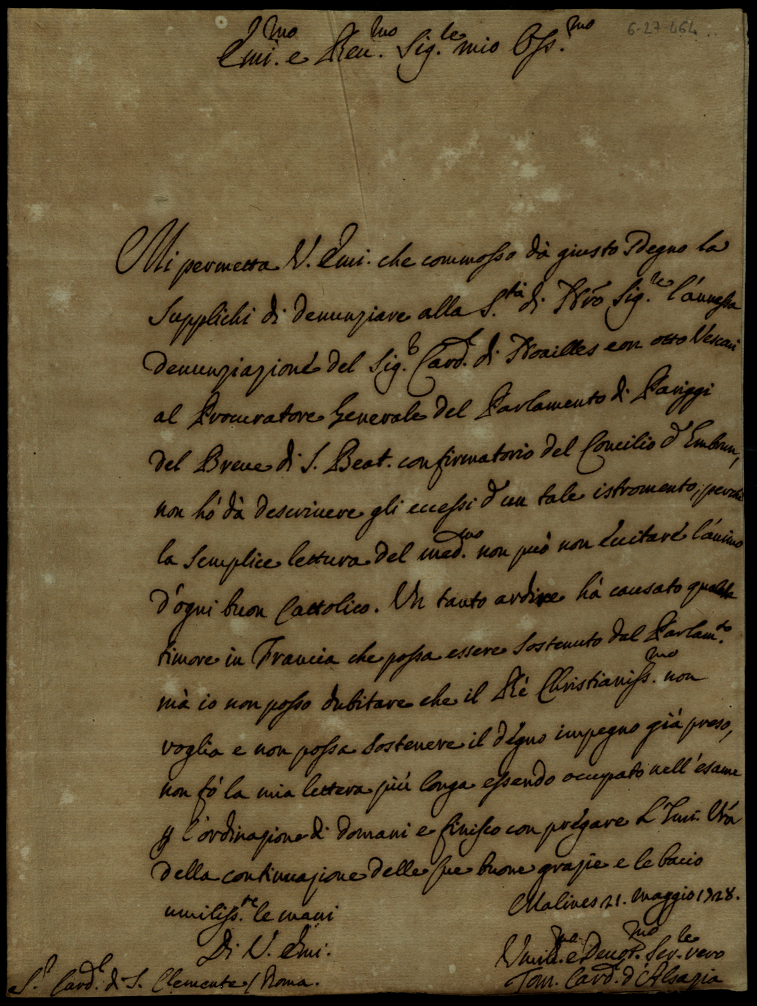 6-27-464
Emi.mo e Reu.mo Sig.le mio Oss.mo
Mi permetta V. Emi. che commosso dà giusto sdegno la
supplichi di denunziare alla S.tà di Nro Sig.re l'annessa
denunziazione del Sig.r Card. di Noailles con otto Vescovi
al Procuratore Generale del Parlamento di Pariggi
del Breue di S. Beat. confirmatorio del Concilio d'Embrun,
non hò dà descriuere gli eccessi d'un tale istromento, perche
la semplice lettura del med.mo non può non éccitare l'ánimo
d'ógni buon Cattolico. Un tanto ardire hà causato qualche
timore in Francia che possa essere sostenuto dal Parlam.to
mà io non posso dubitare che il Ré Christianiss.mo non
voglia e non possa sostenere il dégno impegno già preso,
non fó la mia lettera più longa essendo occupato nell'ésame
p l'órdinazione di domani e finisco con prégare L'Emi: Vrá
della continuazione delle sue buone grazie e le bacio
umiliss.te le mani
Malines 21. maggio 1728.
Di V. Emi.
Umil.me e Deuot.mo Ser.le vero
Tom. Card. d'Alsazia
S.r Card.l di S. Clemente / Roma.